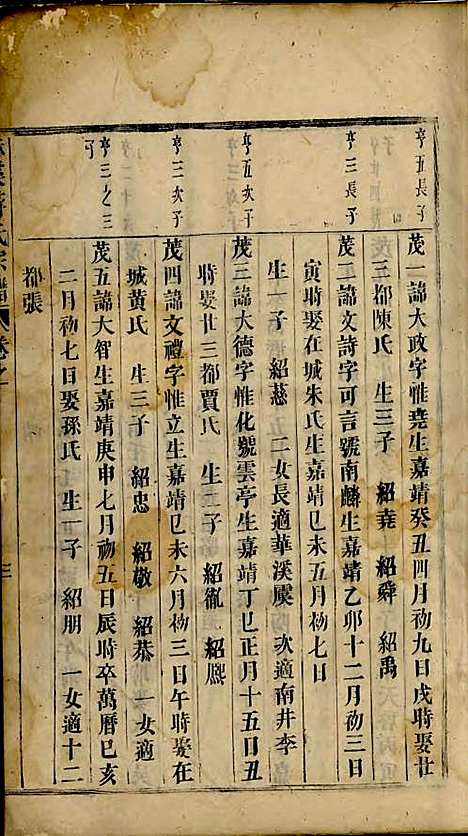 亨五長子
茂一諱大政字惟堯生嘉靖癸丑四月初九日戌時娶廿
三都陳氏　生三子　紹堯　紹舜　紹禹
亨三長子
茂二諱文詩字可言號南麟生嘉靖乙卯十二月初三日
寅時娶在城朱氏生嘉靖己未五月初七日
生一子　紹慈　二女長適華溪虞　次適南井李
亨五次子
茂三諱大德字惟化號雲亭生嘉靖丁巳正月十五日丑
時娶廿三都賈氏　生二子　紹胤　紹熙
亨三次子
茂四諱文禮字惟立生嘉靖己未六月初三日午時娶在
城黃氏　生三子　紹忠　紹敬　紹恭　一女適
亨三之三子
茂五諱大智生嘉靖庚申七月初五日辰時卒萬曆己亥
二月初七日娶孫氏　生一子　紹朋　一女適十二
都張
氏宗譜
卷之